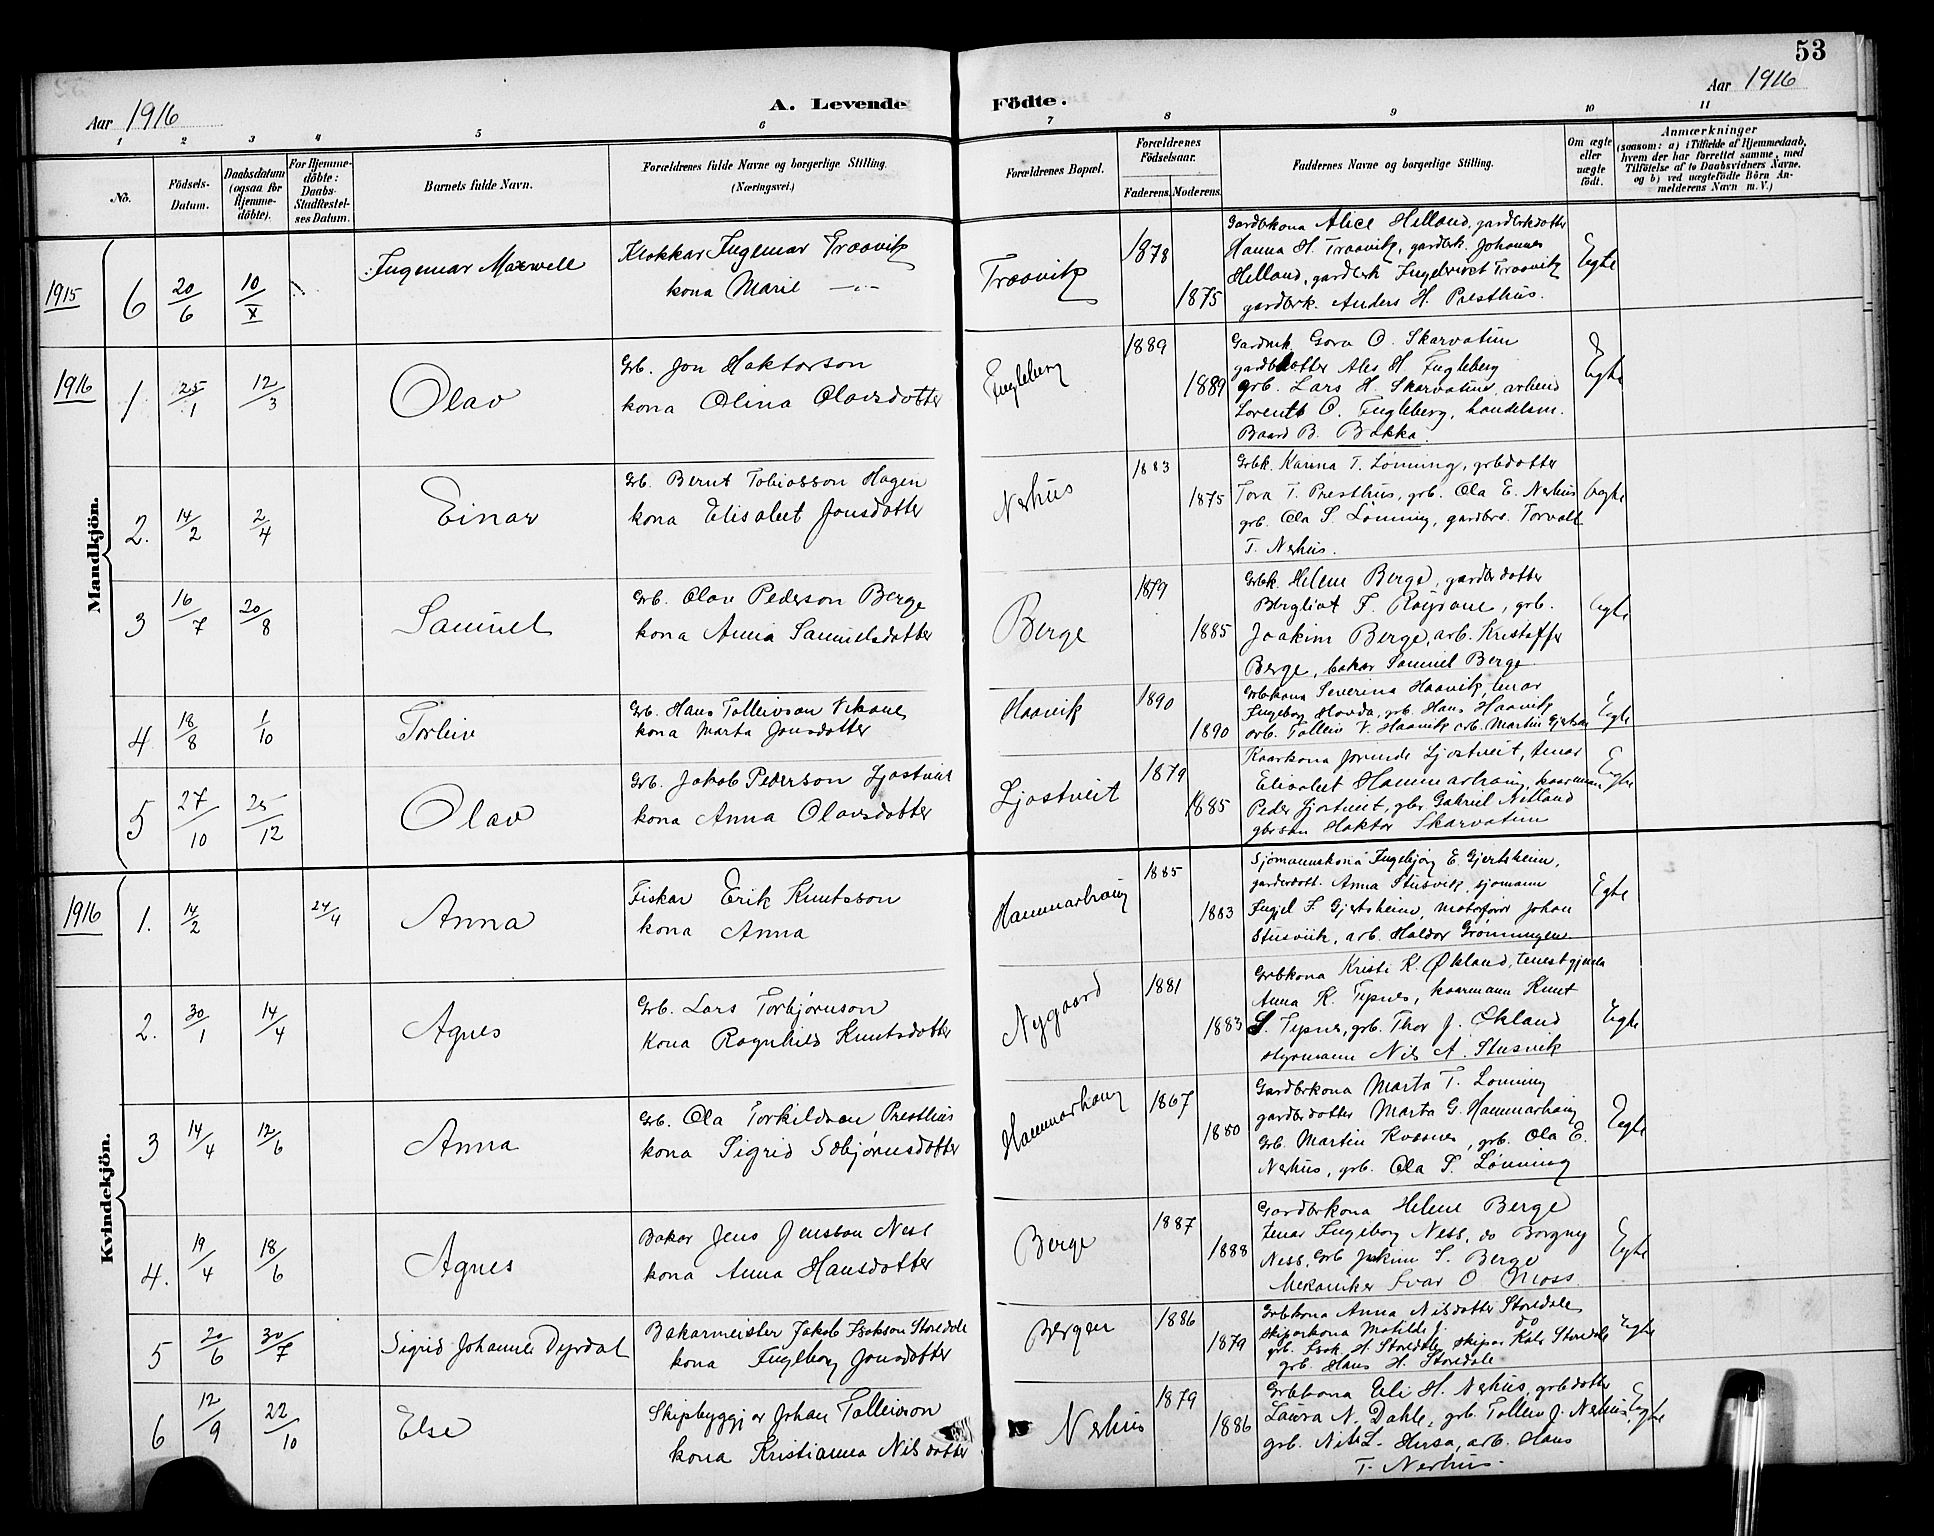 53
Aar 1916
A. Levende Födte.
Aar 1916
1 2 3 4 5 6 7 8 9 10 11
No.
Födsels-Datum.
Daabsdatum (ogsaa for Hjemme-döbte).
For Hjemme-döbte: Daabs-Stadfæstel-ses Datum.
Barnets fulde Navn.
Forældrenes fulde Navne og borgerlige Stilling. (Næringsvei.)
Forældrenes Bopæl.
Forældrenes Födselsaar.
Faderens. Moderens.
Faddernes Navne og borgerlige Stilling.
Om ægte eller uægte födt.
Anmærkninger
(saasom: a) i Tilfælde af Hjemmedaab, hvem der har forrettet samme, med Tilföielse af to Daabsvidners Navne. og b) ved uægtefödte Börn An-melderens Navn m. V.)
Mandkjön.
1915
6 20/6 10/X
Ingemar Maxwell
Klokkar Ingemar Traavik
kona Marie —"—
Traavik
1878
1875
Gardbrkona Alice Helland, gardbrkdotter
Hanna H. Traavik, gardbrk. Johannes
Helland, gardbrk Ingebrigt Traavik
gardbrk. Anders H. Presthus.
Egte
1916
1 25/1 12/3
Olav
Grb. Jon Haktorson
kona Olina Olavsdotter
Fugleberg
1889
1889
Gardmk. Gora O. Skarvatun
gardbdotter Ales H. Fugleberg
grb. Lars H. Skarvatun, arbeid
Lorents O. Fugleberg, handelsm.
Baard B. Bakka.
Egte
2. 14/2 2/4
Einar
Grb. Bernt Tobiasson Hagen
kona Elisabet Jonsdotter
Nerhus
1883
1875
Grbk. Karina T. Lönning, grbdotter
Tora T. Presthus, grb. Ola E. Nerhus
grb. Ola S. Lönning, gardbrs. Torvald
T. Nerhus.
Egte
3 16/7 20/8
Samuel
Grb. Olav Pederson Berge
kona Anna Samuelsdotter
Berge
1879
1885
Grbk. Helene Berge, gardbrdotter
Bergliot F. Röysane, grb.
Joakim Berge, arb. Kristoffer
Berge, bakar Samuel Berge
Egte
4. 18/8 1/10
Torleiv
Grb. Hans Tolleivson Vikanes
kona Marta Jonsdotter
Haavik
1890
1890
Grbkona Severina Haavik, tenar
Ingeborg Hovda, grb. Hans Haavik
arb. Tolleiv V. Haavik arb. Martin
Egte
5 27/10 25/12
Olav
Grb. Jakob Pederson Ljostveit
kona Anna Olavsdotter
Ljostveit
1879
1885
Kaarkona Jorunde Ljostveit, tenar
Elisabet Hammarhaug, kaarmann
Peder Ljostveit, gbr. Gabriel Netland
gbrson Haktor Skarvatun
Egte
Kvindekjön.
1916
1. 14/2 24/4
Anna
Fiskar Erik Knutsson
kona Anna
Hammarhaug
1885
1883
Sjömannskona Ingebjörg E. Gjertsheim,
garderdott. Anna Stusvik, sjömann
Engjel S. Gjertsheim, motorförar Johan
Stusvik, arb. Haldor Grönningen.
Egte
2. 30/1 14/4
Agnes
Grb. Lars Torbjörnson
Kona Ragnhild Knutsdotter
Nygaard
1881
1883
Grbkona Kristi K. Økland, tenestgjenta
Anna K. Tepnes, kaarmann Knut
S. Tepnes, grb. Thor J. Økland
styrmann Nils A. Stusvik
Egte
3 14/4 12/6
Anna
Grb. Ola Torkildsen Presthus
kona Sigrid Sobjörnsdotter
Hammarhaug
1867
1880
Gardbrkona Marta T. Lonning
gardbrdotter Marta G. Hammarhaug
Grb. Martin Kvasnes, grb. Ola E.
Nerhus, grb. Ola S. Lönning
Egte
4. 19/4 18/6
Agnes
Bakar Jens Jensson Ness
kona Anna Hansdotter
Berge
1887
1888
Gardbrkona Helene Berge
tenar Ingeborg Ness, do Borgny
Ness, Grb Jokim S. Berge
Mekaniker Ivar O Moss.
Egte
5 20/6 30/7
Sigrid Johanne Dyrdal
Bakarmeister Jakob Isakson Storedale
kona Ingeborg Jonsdotter
Bergen
1886
1879
Grbkona Anna Nilsdotter Storedale
skiparkona Matilde J. do
grb. Isak H. Storedale, skipar Kals Storedale
grb. Hans H. Storedale
Egte
6 12/9 22/10
Else
Skipbyggjar Johan Tolleivson
kona Kristianna Nilsdotter
Nerhus
1879
1886
Grbkona Eli H. Nerhus, grbdotter
Laura N. Dahle, grb. Tolleiv J. Nerhus
grb. Nils L. Husa, arb. Hans
T. Nerhus.
Egte